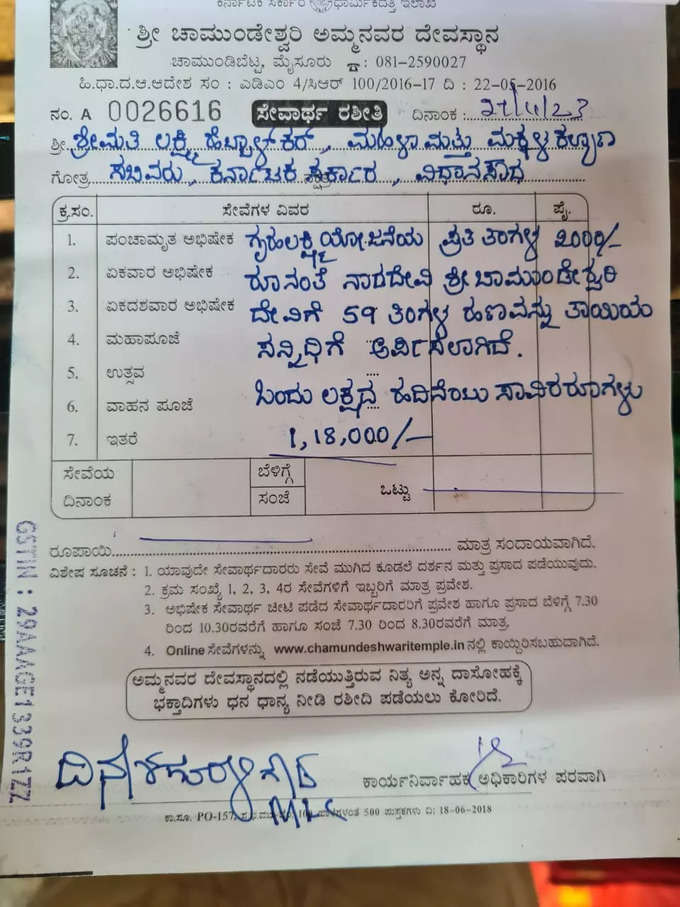 ಕರ್ನಾಟಕ ಸರ್ಕಾರ ಧಾರ್ಮಿಕದತ್ತಿ ಇಲಾಖೆ
ಶ್ರೀ ಚಾಮುಂಡೇಶ್ವರಿ ಅಮ್ಮನವರ ದೇವಸ್ಥಾನ
ಚಾಮುಂಡಿಬೆಟ್ಟ, ಮೈಸೂರು ☎: 081-2590027
ಹಿ.ಧಾ.ದ.ಆ.ಆದೇಶ ಸಂ : ಎಡಿಎಂ 4/ಸಿಆರ್ 100/2016-17 ದಿ : 22-05-2016
ನಂ. A 0026616 ಸೇವಾರ್ಥ ರಶೀತಿ ದಿನಾಂಕ :
ಶ್ರೀ. ಶ್ರೀಮತಿ ಲಕ್ಷ್ಮಿ ಹೆಬ್ಬಾಳ್‌ಕರ್, ಮಹಿಳಾ ಮತ್ತು ಮಕ್ಕಳ ಕಲ್ಯಾಣ
ಗೋತ್ರ ಸಚಿವರು, ಕರ್ನಾಟಕ ಸರ್ಕಾರ, ವಿಧಾನಸೌಧ
ಕ್ರ.ಸಂ. ಸೇವೆಗಳ ವಿವರ ರೂ. ಪೈ.
1. ಪಂಚಾಮೃತ ಅಭಿಷೇಕ ಗೃಹಲಕ್ಷ್ಮಿ ಯೋಜನೆಯ ಪ್ರತಿ ತಿಂಗಳ 2000/-
2. ಏಕವಾರ ಅಭಿಷೇಕ ರೂನಂತೆ ನಾಡದೇವಿ ಶ್ರೀ ಚಾಮುಂಡೇಶ್ವರಿ
3. ಏಕದಶವಾರ ಅಭಿಷೇಕ ದೇವಿಗೆ 59 ತಿಂಗಳ ಹಣವನ್ನು ತಾಯಿಯ
4. ಮಹಾಪೂಜೆ ಸನ್ನಿಧಿಗೆ ಅರ್ಪಿಸಲಾಗಿದೆ.
5. ಉತ್ಸವ
6. ವಾಹನ ಪೂಜೆ ಒಂದು ಲಕ್ಷದ ಹದಿನೆಂಟು ಸಾವಿರ ರೂಗಳು
7. ಇತರೆ 1,18,000/-
ಸೇವೆಯ ದಿನಾಂಕ ಬೆಳಿಗ್ಗೆ ಸಂಜೆ ಒಟ್ಟು
ರೂಪಾಯಿ ಮಾತ್ರ ಸಂದಾಯವಾಗಿದೆ.
ವಿಶೇಷ ಸೂಚನೆ : 1. ಯಾವುದೇ ಸೇವಾರ್ಥದಾರರು ಸೇವೆ ಮುಗಿದ ಕೂಡಲೆ ದರ್ಶನ ಮತ್ತು ಪ್ರಸಾದ ಪಡೆಯುವುದು.
2. ಕ್ರಮ ಸಂಖ್ಯೆ 1, 2, 3, 4ರ ಸೇವೆಗಳಿಗೆ ಇಬ್ಬರಿಗೆ ಮಾತ್ರ ಪ್ರವೇಶ.
3. ಅಭಿಷೇಕ ಸೇವಾರ್ಥ ಚೀಟಿ ಪಡೆದ ಸೇವಾರ್ಥದಾರರಿಗೆ ಪ್ರವೇಶ ಹಾಗೂ ಪ್ರಸಾದ ಬೆಳಿಗ್ಗೆ 7.30
ರಿಂದ 10.30ರವರೆಗೆ ಹಾಗೂ ಸಂಜೆ 7.30 ರಿಂದ 8.30ರವರೆಗೆ ಮಾತ್ರ.
4. Online ಸೇವೆಗಳನ್ನು www.chamundeshwaritemple.in ನಲ್ಲಿ ಕಾಯ್ದಿರಿಸಬಹುದಾಗಿದೆ.
ಅಮ್ಮನವರ ದೇವಸ್ಥಾನದಲ್ಲಿ ನಡೆಯುತ್ತಿರುವ ನಿತ್ಯ ಅನ್ನ ದಾಸೋಹಕ್ಕೆ
ಭಕ್ತಾದಿಗಳು ಧನ ಧಾನ್ಯ ನೀಡಿ ರಶೀದಿ ಪಡೆಯಲು ಕೋರಿದೆ.
MLC
ಕಾರ್ಯನಿರ್ವಾಹಕ ಅಧಿಕಾರಿಗಳ ಪರವಾಗಿ
500 ಪುಸ್ತಕಗಳು ದಿ: 18-06-2018
GSTIN : 29AAAGE1339R1ZZ